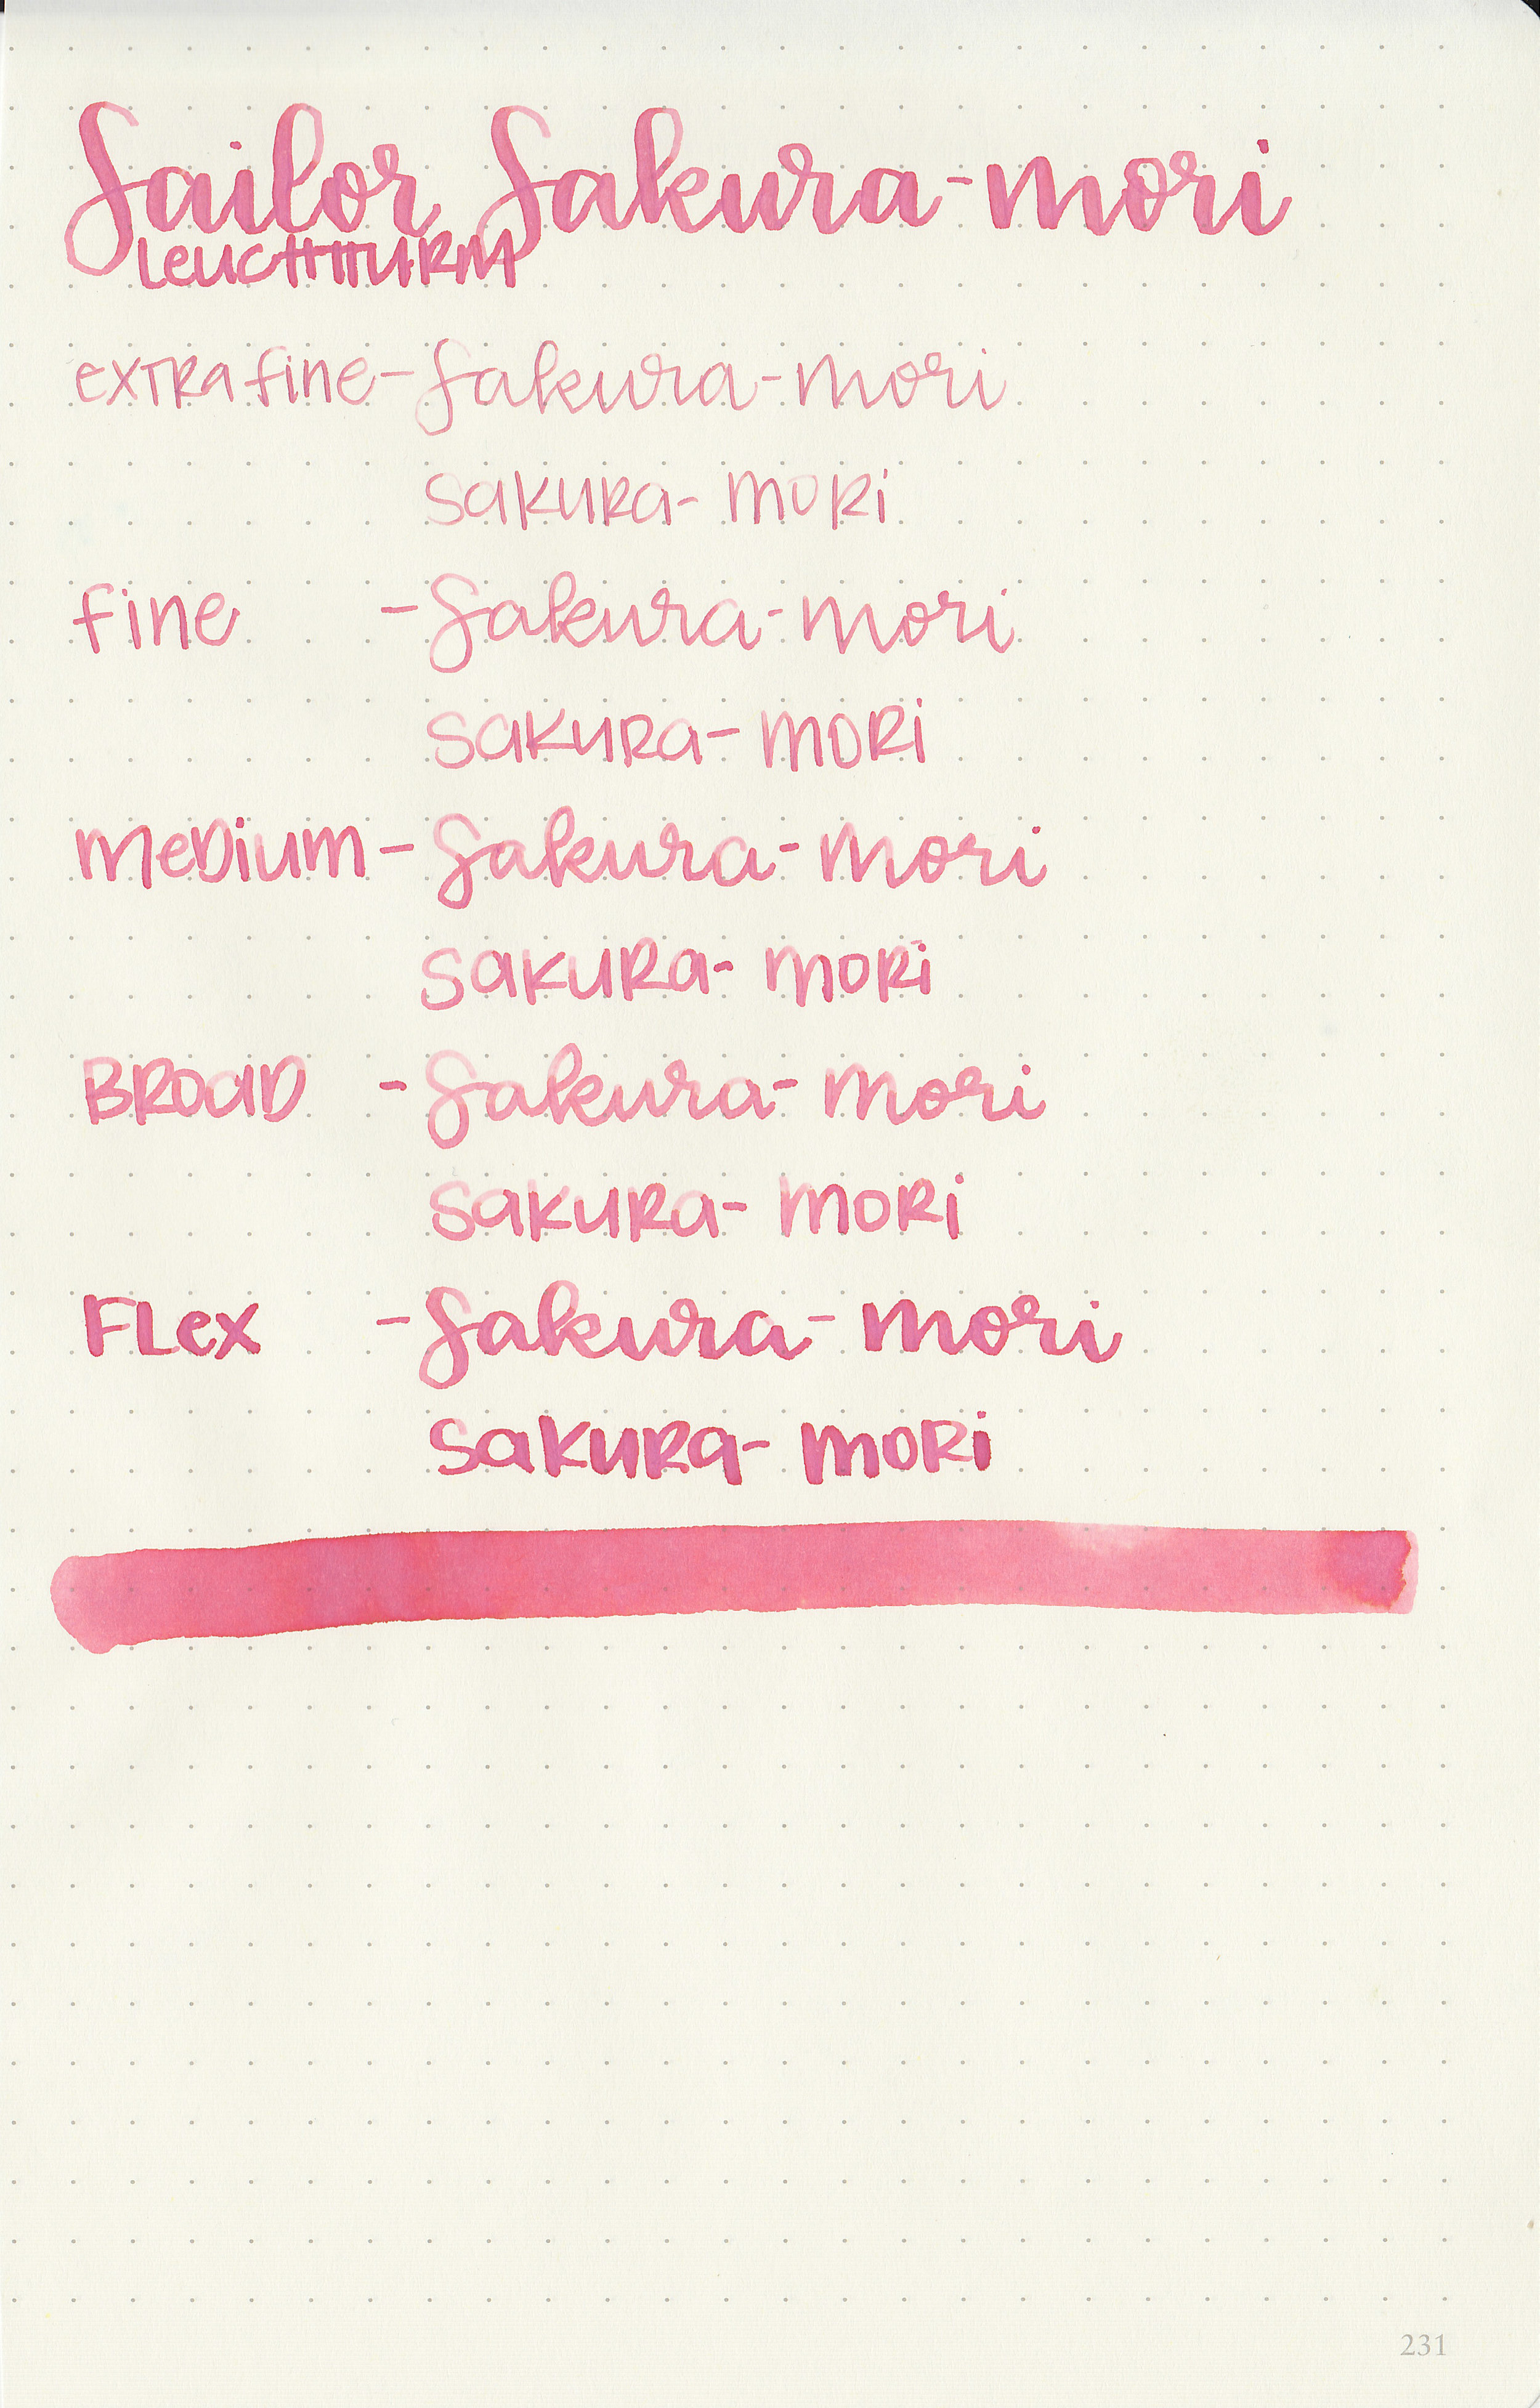 Sailor Sakura-mori
LEUCHTTURM
extra fine - Sakura-mori
SAKURA- MORI
Fine - Sakura-mori
SAKURA- MORI
Medium - Sakura-mori
SAKURA- MORI
BROAD - Sakura-mori
SAKURA- MORI
FLex - Sakura-mori
SAKURA- MORI
231